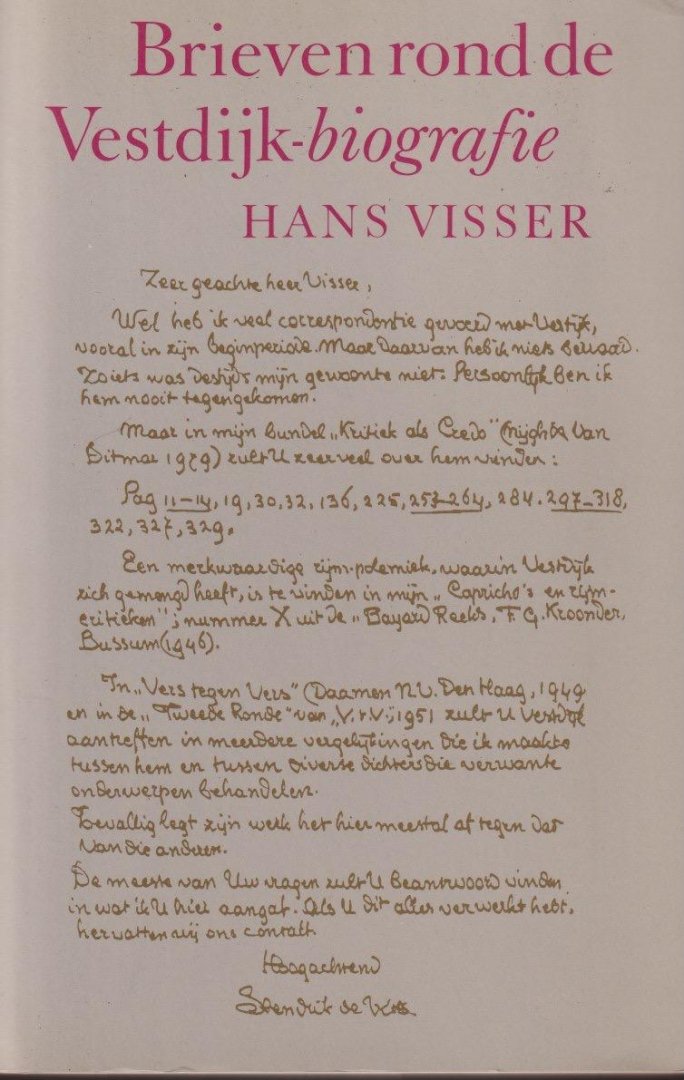 Brieven rond de
Vestdijk-biografie
HANS VISSER
Zeer geachte heer Visser,
Wel heb ik veel correspondentie gevoerd met Vestdijk,
vooral in zijn beginperiode. Maar daarvan heb ik niets bewaard.
Zoiets was destijds mijn gewoonte niet. Persoonlijk ben ik
hem nooit tegengekomen.
Maar in mijn bundel „Kritiek als Credo" (Nijgh & Van
Ditmar 1979) zult U zeer veel over hem vinden:
Pag 11-14, 19, 30, 32, 136, 225, 257-264, 284. 297-318,
322, 327, 329.
Een merkwaardige rijm-polemiek, waarin Vestdijk
zich gemengd heeft, is te vinden in mijn „Capricho's en rijm-
critieken"; nummer X uit de „Bayard Reeks, F. G. Kroonder,
Bussum (1946).
In „Vers tegen Vers" (Daamen N.V. Den Haag, 1949
en in de „Tweede Ronde" van „V.t.V.", 1951 zult U Vestdijk
aantreffen in meerdere vergelijkingen die ik maakte
tussen hem en tussen diverse dichters die verwante
onderwerpen behandelen.
Toevallig legt zijn werk het hier meestal af tegen dat
van die anderen.
De meeste van Uw vragen zult U beantwoord vinden
in wat ik U hier aangaf. Als U dit alles verwerkt hebt,
hervatten wij ons contact.
Hoogachtend
Hendrik de Vries